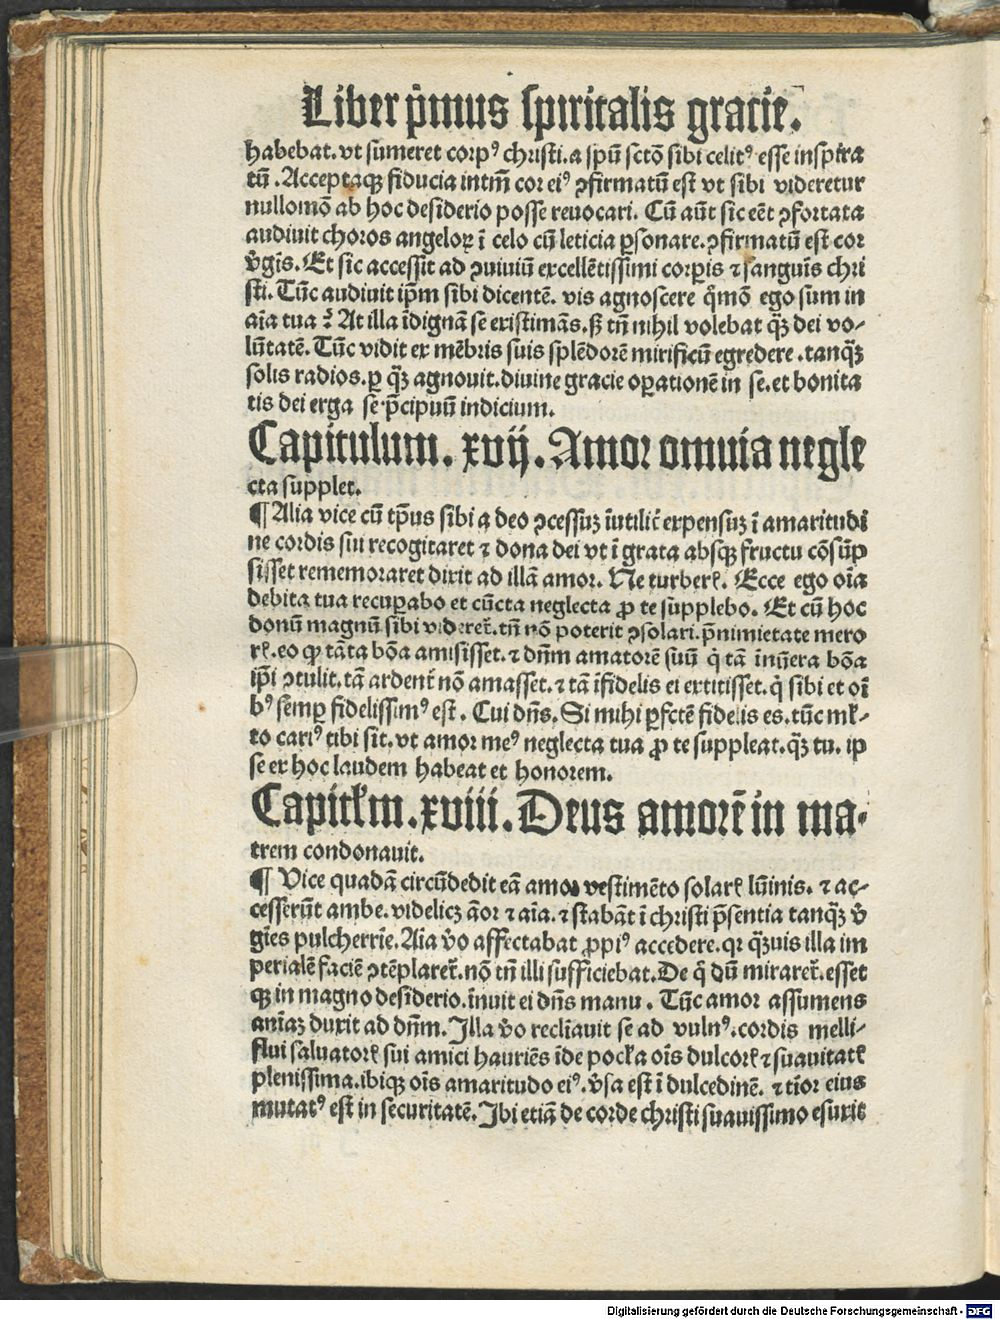 Liber p̄mus spiritalis gracie.
habebat. vt sūmeret corpꝰ christi. a spū sctō sibi celitꝰ esse inspira
tū. Acceptaqꝫ fiducia intm̄ cor eiꝰ ꝯfirmatū est vt sibi videretur
nullomō ab hoc desiderio posse reuocari. Cū aūt sic eēt ꝯfortata
audiuit choros angeloꝝ ī celo cū leticia ꝑsonare. ꝯfirmatū est cor
v̄gīs. Et sic accessit ad ꝯuiuiū excellētissimi corꝑis ⁊ sanguīs chri
sti. Tūc audiuit ip̄m sibi dicentē. vis agnoscere q̄mō ego sum in
aīa tua ? At illa īdignā se existimās. sꝫ tn̄ nihil volebat qͣꝫ dei vo-
lūtatē. Tūc vidit ex mēbris suis splēdorē mirificū egredere. tanqͣꝫ
solis radios. ꝑ qͣꝫ agnouit. diuine gracie oꝑationē in se. et bonita
tis dei erga se p̄cipuū indicium.
Capitulum. xvij. Amor omnia negle
cta supplet.
¶ Alia vice cū tp̄us sibi a deo ꝯcessuꝫ īutilit̄ expensuꝫ ī amaritudi
ne cordis sui recogitaret ⁊ dona dei vt ī grata absqꝫ fructu cōsūp
sisset rememoraret dixit ad illā amor. Ne turberꝭ. Ecce ego oīa
debita tua recuꝑabo et cūcta neglecta ꝓ te supplebo. Et cū hoc
donū magnū sibi videret̄. tn̄ nō poterit ꝯsolari. p̄nimietate mero
rꝭ. eo ꝙ tāta bōa amisisset. ⁊ dn̄m amatorē suū q̄ tā īnūera bōa
ip̄i ꝯtulit. tā ardent̄ nō amasset. ⁊ tā īfidelis ei extitisset. q̄ sibi et oī
bꝰ semꝑ fidelissimꝰ est. Cui dn̄s. Si mihi ꝑfctē fidelis es. tūc ml̄-
to cariꝰ tibi sit. vt amor meꝰ neglecta tua ꝓ te suppleat. qͣꝫ tu. ip
se ex hoc laudem habeat et honorem.
Capitl̄m. xviii. Deus amorē in ma-
trem condonauit.
¶ Vice quadā circūdedit eā amor vestimēto solarꝭ lūinis. ⁊ ac-
cesserūt ambe. videlicꝫ āor ⁊ aīa. ⁊ stabāt ī christi p̄sentia tanqͣꝫ v̄
gīes pulcherrīe. Aīa v̄o affectabat ꝓpiꝰ accedere. qr qͣꝫuis illa im
perialē faciē ꝯtēplaret̄. nō tn̄ illi sufficiebat. De q̄ dū miraret̄. esset
qꝫ in magno desiderio. īnuit ei dn̄s manu. Tūc amor assumens
anīaꝫ duxit ad dn̄m. Illa v̄o reclīauit se ad vulnꝰ. cordis melli-
flui saluatorꝭ sui amici hauriēs īde pocl̄a oīs dulcorꝭ ⁊ suauitatꝭ
plenissima. ibiqꝫ oīs amaritudo eiꝰ. v̄sa est ī dulcedinē. ⁊ tīor eius
mutatꝰ est in securitatē. Ibi etiā de corde christi suauissimo esuxit
Digitalisierung gefördert durch die Deutsche Forschungsgemeinschaft - DFG